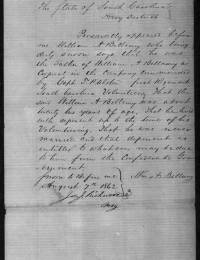 The State of South Carolina
Horry District
Personally appeared before
me William A Bellamy who being
duly sworn says that he was
the Father of William A Bellamy a
Corporal in the Company Commanded
by Capt first Regiment
South Carolina Volunteers That the
said William A Bellamy was about
twenty six years of age, That he
up to the time of his
Volunteering. That he was never
married and that deponent is
entitled to whatever may be due
to him from the Confederate Gov-
ernment
Sworn to before me Wm A Bellamy
August 7th 1862